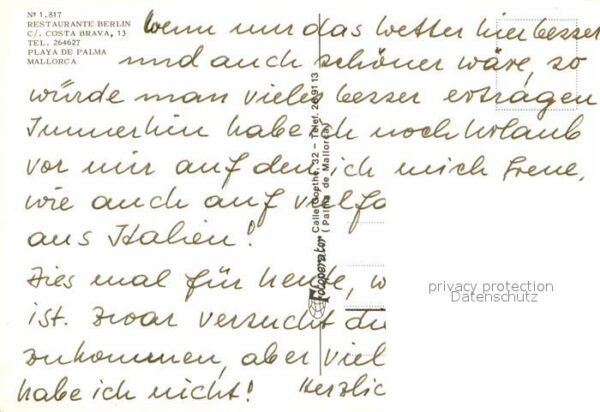 Nº 1.817
RESTAURANTE BERLIN
C/. COSTA BRAVA, 13
TEL. 264627
PLAYA DE PALMA
MALLORCA
Wenn nur das Wetter hier besser
und auch schöner wäre, so
würde man vieles besser ertragen
Immerhin habe ich noch Urlaub
vor mir auf den ich mich freue,
wie auch auf
aus Italien!
Dies mal für heute, w
ist. Zwar versucht du
zukommen, aber viel
habe ich nicht! Herzlic
Fotoperator Calle Goethe, 32 - Telef. 26 91 13
(Palma de Mallorca)
privacy protection
Datenschutz